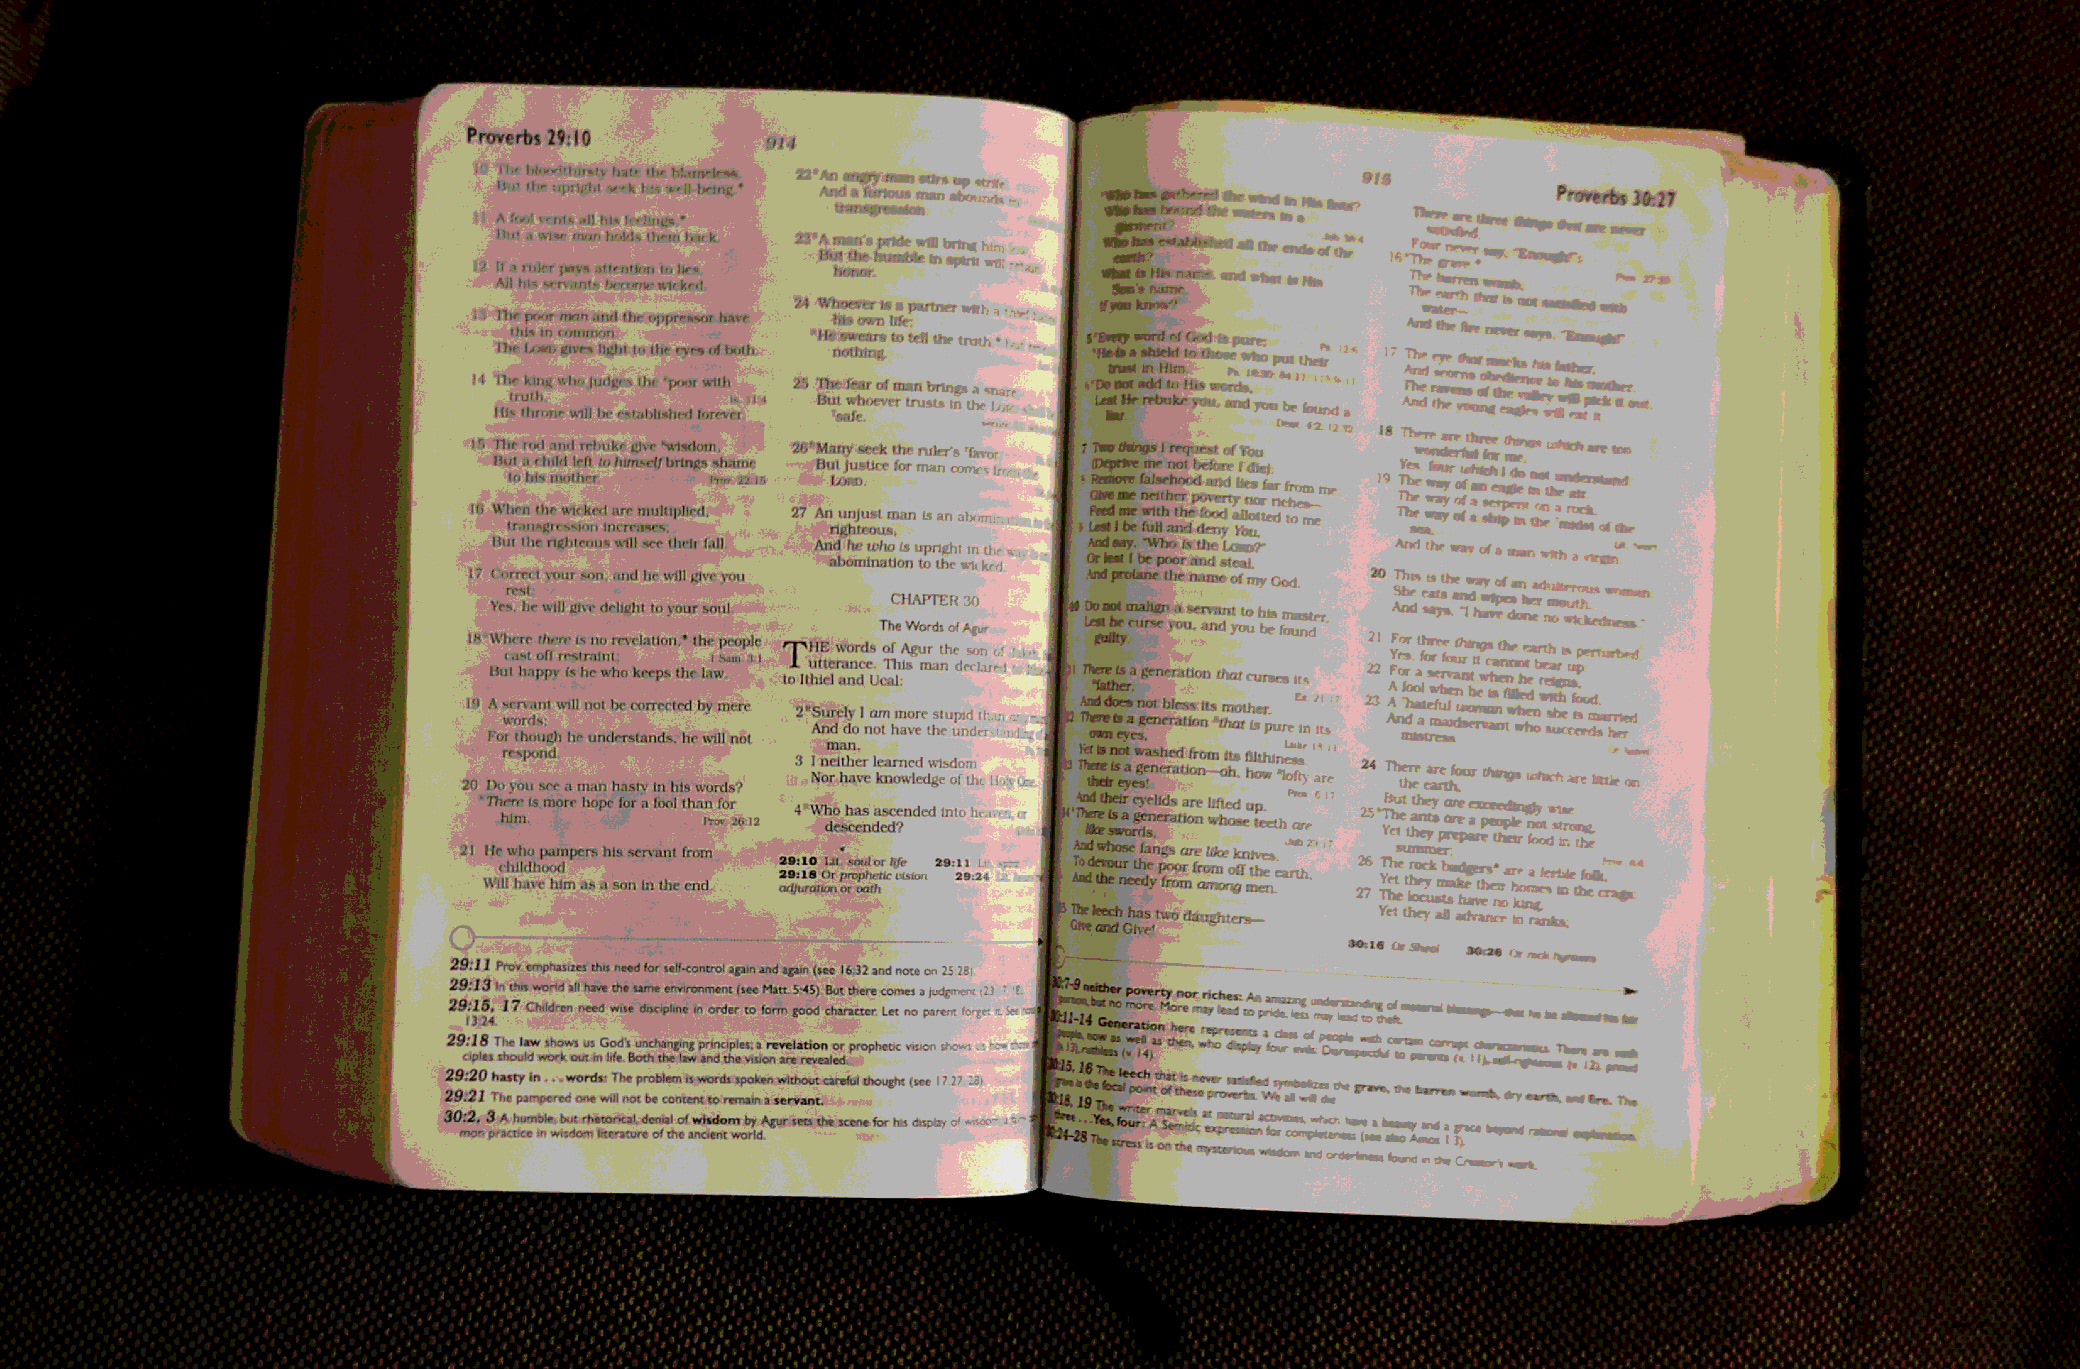 Proverbs 29:10
914
10 The bloodthirsty hate the blameless,
But the upright seek his well-being.*
11 A fool vents all his feelings,*
But a wise man holds them back.
12 If a ruler pays attention to lies,
All his servants become wicked.
13 The poor man and the oppressor have
this in common:
The LORD gives light to the eyes of both.
14 The king who judges the poor with
truth,
Is. 11:4
His throne will be established forever.
15 The rod and rebuke give wisdom,
But a child left to himself brings shame
to his mother.
Prov. 22:15
16 When the wicked are multiplied,
transgression increases;
But the righteous will see their fall.
17 Correct your son, and he will give you
rest;
Yes, he will give delight to your soul.
18 Where there is no revelation,* the people
cast off restraint;
1 Sam. 3:1
But happy is he who keeps the law.
19 A servant will not be corrected by mere
words;
For though he understands, he will not
respond.
20 Do you see a man hasty in his words?
There is more hope for a fool than for
him.
Prov. 26:12
21 He who pampers his servant from
childhood
Will have him as a son in the end.
22 An angry man stirs up strife,
And a furious man abounds in
transgression.
23 A man's pride will bring him
But the humble in spirit will
honor.
24 Whoever is a partner with a
his own life;
He swears to tell the truth,*
nothing.
25 The fear of man brings a snare,
But whoever trusts in the
safe.
26 Many seek the ruler's favor,
But justice for man comes from the
LORD.
27 An unjust man is an
righteous,
And he who is upright in the way
abomination to the wicked.
CHAPTER 30
The Words of Agur
THE words of Agur the son of
utterance. This man declared
to Ithiel and Ucal:
2 Surely I am more stupid than
And do not have the understanding
man.
3 I neither learned wisdom
Nor have knowledge of the Holy One.
4 Who has ascended into heaven, or
descended?
29:10 Lit. soul or life 29:11 Lit. spirit
29:18 Or prophetic vision 29:24
adjuration or oath
29:11 Prov. emphasizes this need for self-control again and again (see 16:32 and note on 25:28).
29:13 In this world all have the same environment (see Matt. 5:45). But there comes a judgment
29:15, 17 Children need wise discipline in order to form good character. Let no parent forget it. See
13:24.
29:18 The law shows us God's unchanging principles; a revelation or prophetic vision shows us how
ciples should work out in life. Both the law and the vision are revealed.
29:20 hasty in . . . words: The problem is words spoken without careful thought (see 17:27, 28).
29:21 The pampered one will not be content to remain a servant.
30:2, 3 A humble, but rhetorical, denial of wisdom by Agur sets the scene for his display of wisdom
mon practice in wisdom literature of the ancient world.
915
Proverbs 30:27
Who has gathered the wind in His fists?
Who has bound the waters in a
garment?
Who has established all the ends of the
earth?
What is His name, and what is His
Son's name,
If you know?
5 Every word of God is pure;
Ps. 12:6
He is a shield to those who put their
trust in Him.
6 Do not add to His words,
Lest He rebuke you, and you be found a
liar.
Deut. 4:2; 12:32
7 Two things I request of You
(Deprive me not before I die):
8 Remove falsehood and lies far from me;
Give me neither poverty nor riches—
Feed me with the food allotted to me;
9 Lest I be full and deny You,
And say, "Who is the LORD?"
Or lest I be poor and steal,
And profane the name of my God.
10 Do not malign a servant to his master,
Lest he curse you, and you be found
guilty.
11 There is a generation that curses its
father,
Ex. 21:17
And does not bless its mother.
12 There is a generation that is pure in its
own eyes,
Luke 18:11
Yet is not washed from its filthiness.
13 There is a generation—oh, how lofty are
their eyes!
Prov. 6:17
And their eyelids are lifted up.
14 There is a generation whose teeth are
like swords,
And whose fangs are like knives,
To devour the poor from off the earth,
And the needy from among men.
15 The leech has two daughters—
Give and Give!
There are three things that are never
satisfied,
Four never say, "Enough!":
16 The grave,*
The barren womb,
The earth that is not satisfied with
water—
And the fire never says, "Enough!"
17 The eye that mocks his father,
And scorns obedience to his mother,
The ravens of the valley will pick it out,
And the young eagles will eat it.
18 There are three things which are too
wonderful for me,
Yes, four which I do not understand:
19 The way of an eagle in the air,
The way of a serpent on a rock,
The way of a ship in the midst of the
sea,
And the way of a man with a virgin.
20 This is the way of an adulterous woman:
She eats and wipes her mouth,
And says, "I have done no wickedness."
21 For three things the earth is perturbed,
Yes, for four it cannot bear up:
22 For a servant when he reigns,
A fool when he is filled with food,
23 A hateful woman when she is married,
And a maidservant who succeeds her
mistress.
24 There are four things which are little on
the earth,
But they are exceedingly wise:
25 The ants are a people not strong,
Yet they prepare their food in the
summer;
26 The rock badgers* are a feeble folk,
Yet they make their homes in the crags;
27 The locusts have no king,
Yet they all advance in ranks;
30:16 Or Sheol 30:26 Or rock hyraxes
30:7-9 neither poverty nor riches: An amazing understanding of material blessings—that he be allowed his fair
portion, but no more. More may lead to pride, less may lead to theft.
30:11-14 Generation here represents a class of people with certain corrupt characteristics. There are such
people, now as well as then, who display four evils: Disrespectful to parents (v. 11), self-righteous (v. 12), proud
(v. 13), ruthless (v. 14).
30:15, 16 The leech that is never satisfied symbolizes the grave, the barren womb, dry earth, and fire. The
grave is the focal point of these proverbs. We all will die.
30:18, 19 The writer marvels at natural activities, which have a beauty and a grace beyond rational explanation.
three . . . Yes, four: A Semitic expression for completeness (see also Amos 1:3).
30:24-28 The stress is on the mysterious wisdom and orderliness found in the Creator's work.